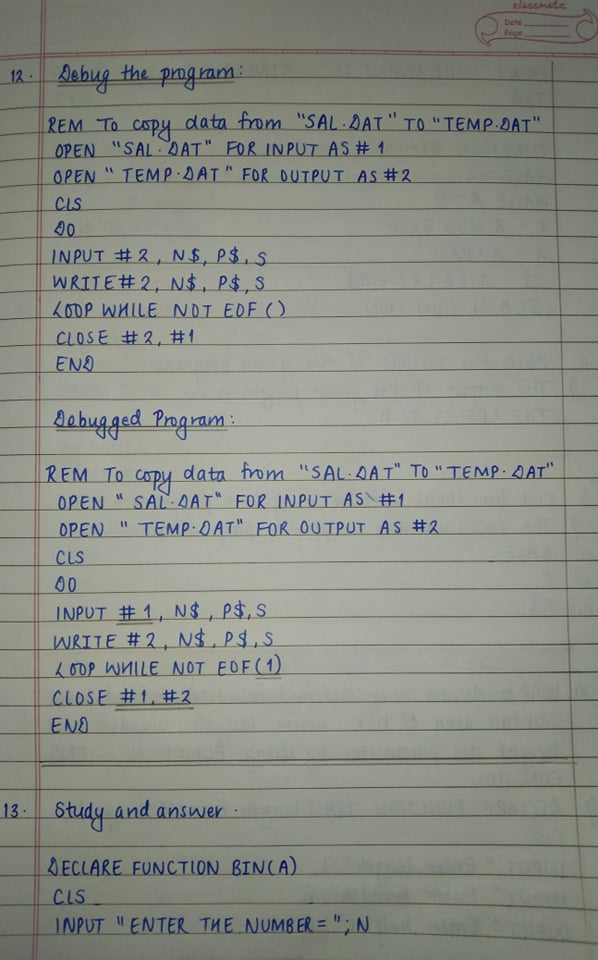 classmate
Date
Page
12. Debug the program:
REM To copy data from "SAL.DAT" TO "TEMP.DAT"
OPEN "SAL.DAT" FOR INPUT AS # 1
OPEN "TEMP.DAT" FOR OUTPUT AS #2
CLS
DO
INPUT #2, N$, P$, S
WRITE #2, N$, P$, S
LOOP WHILE NOT EOF ()
CLOSE #2, #1
END
Debugged Program:
REM To copy data from "SAL.DAT" TO "TEMP.DAT"
OPEN "SAL.DAT" FOR INPUT AS #1
OPEN "TEMP.DAT" FOR OUTPUT AS #2
CLS
DO
INPUT #1, N$, P$, S
WRITE #2, N$, P$, S
LOOP WHILE NOT EOF (1)
CLOSE #1, #2
END
13. Study and answer.
DECLARE FUNCTION BIN(A)
CLS
INPUT "ENTER THE NUMBER = "; N